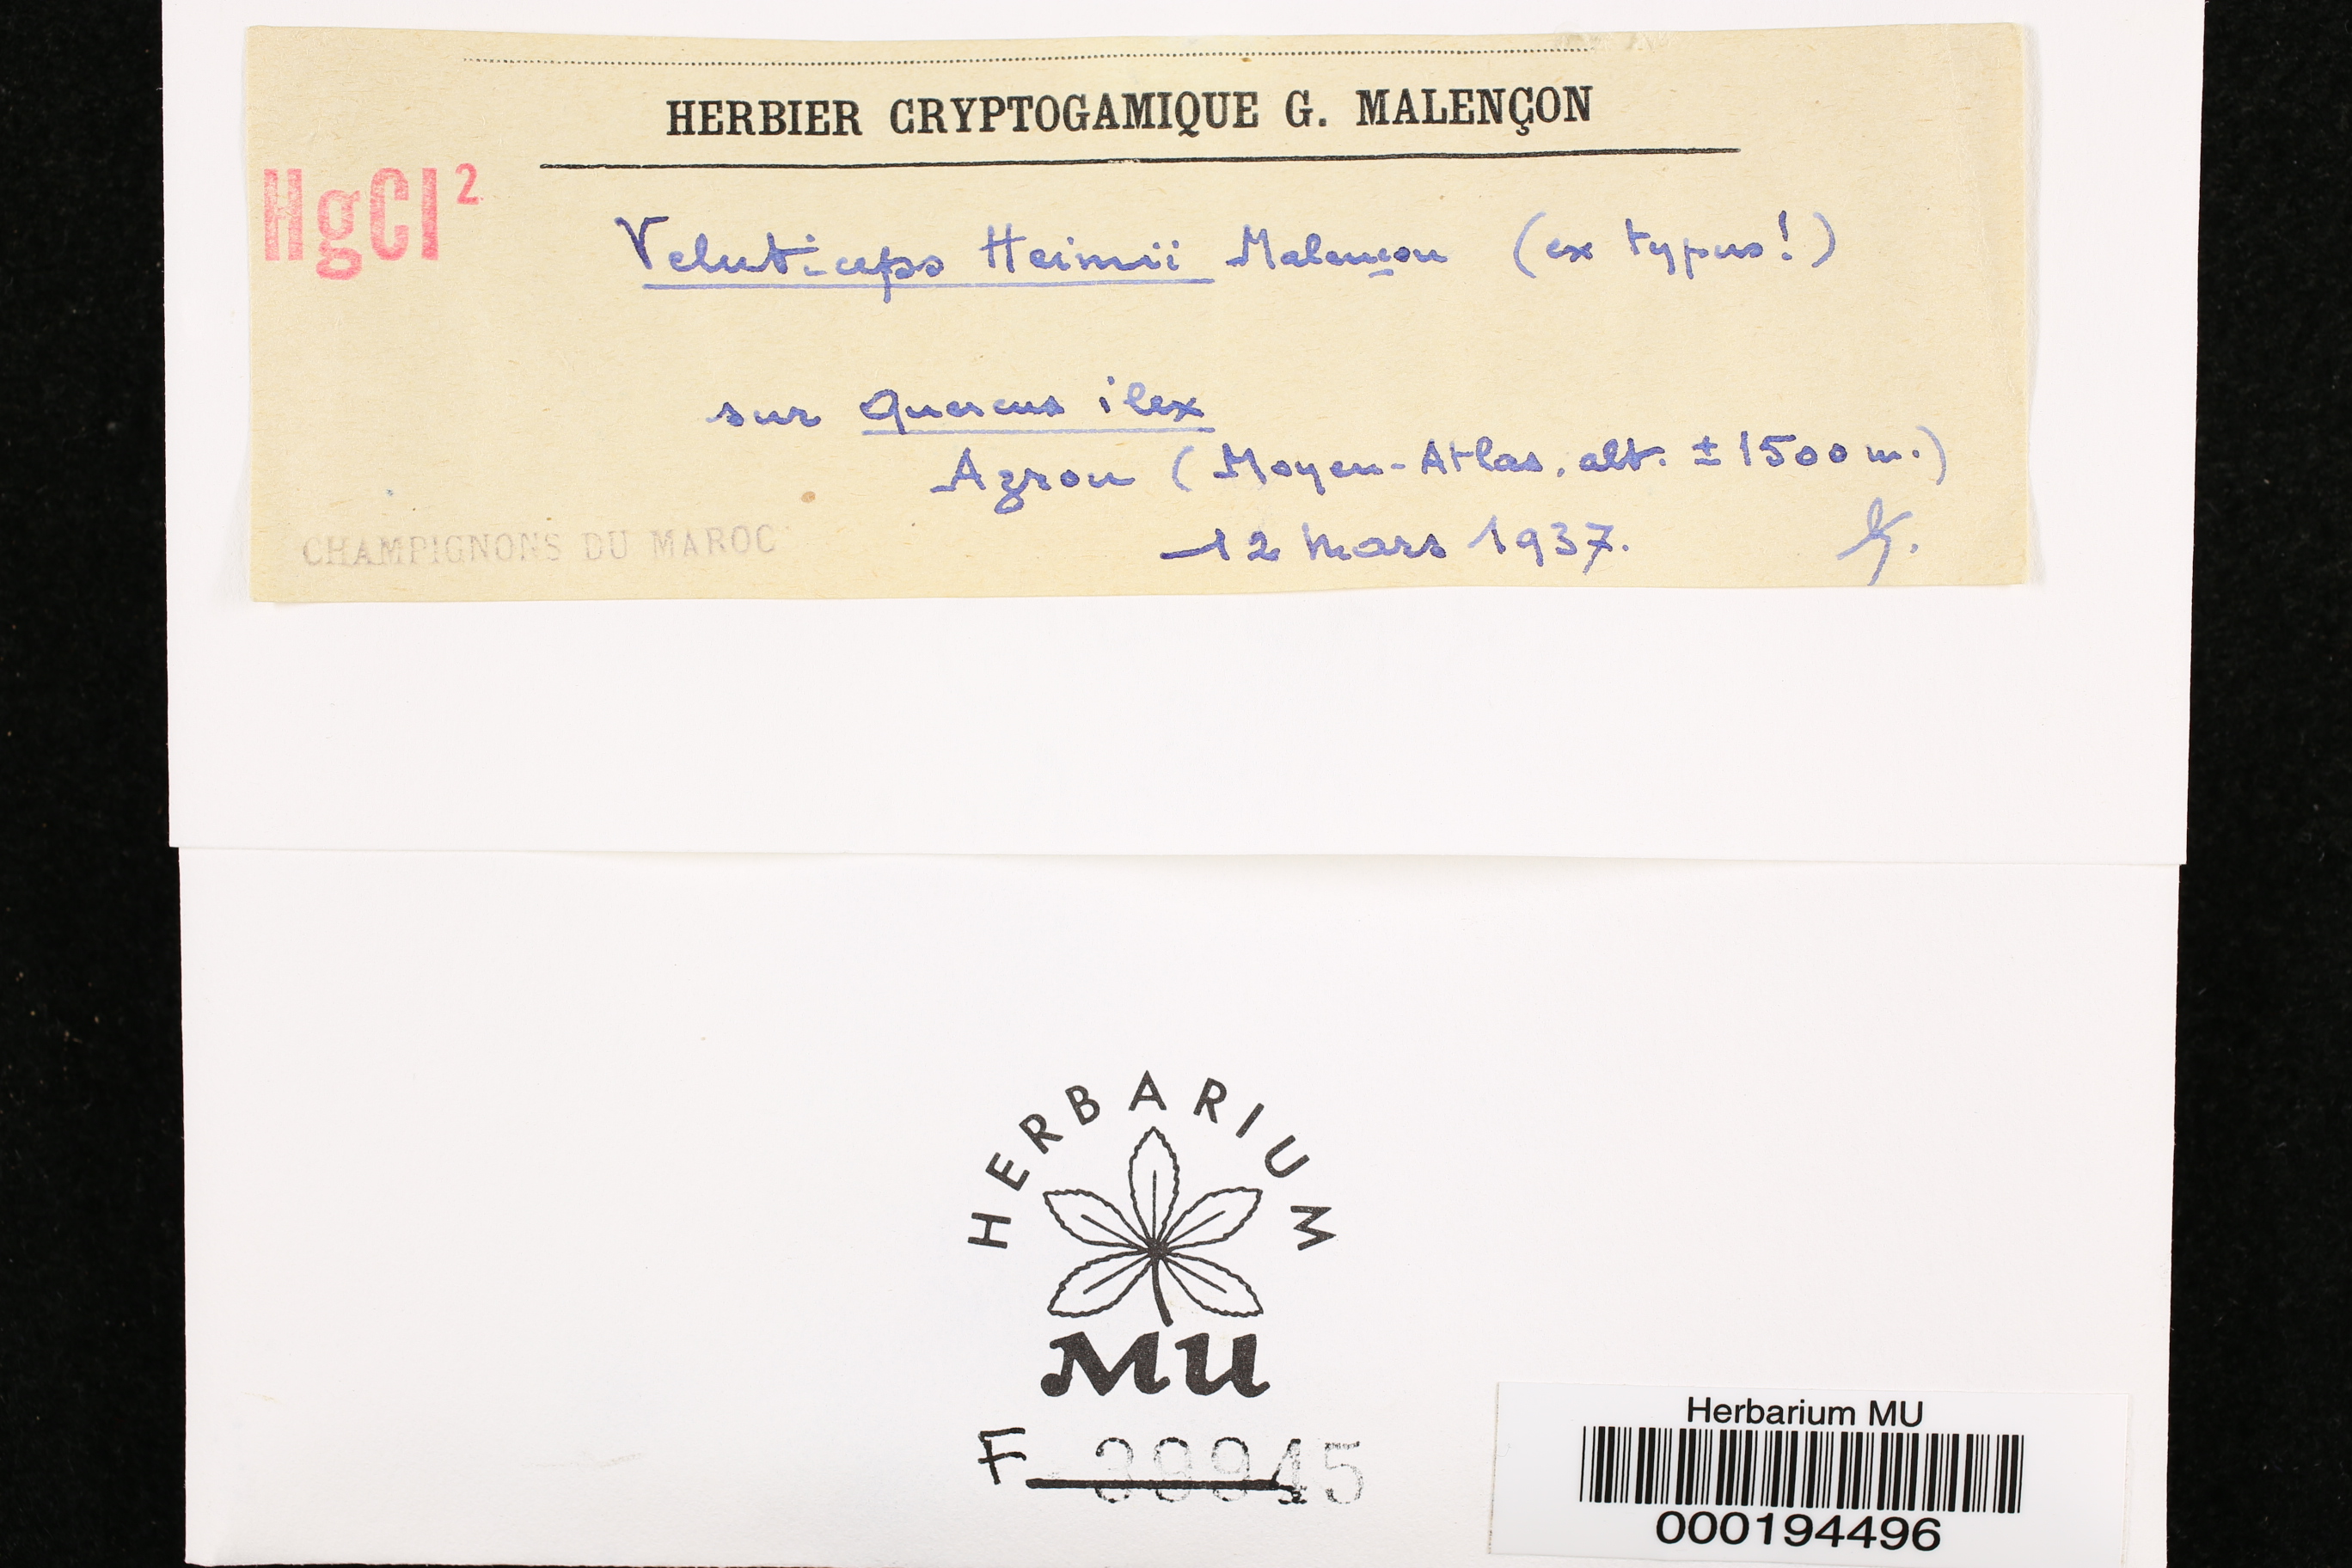 HERBIER CRYPTOGAMIQUE G. MALENÇON
HgCl²
Veluticeps Heimii Malençon (ex typus!)
sur Quercus ilex
Azrou (Moyen-Atlas, alt. ± 1500 m.)
12 mars 1937.
CHAMPIGNONS DU MAROC
HERBARIUM
MU
F 39945
Herbarium MU
000194496